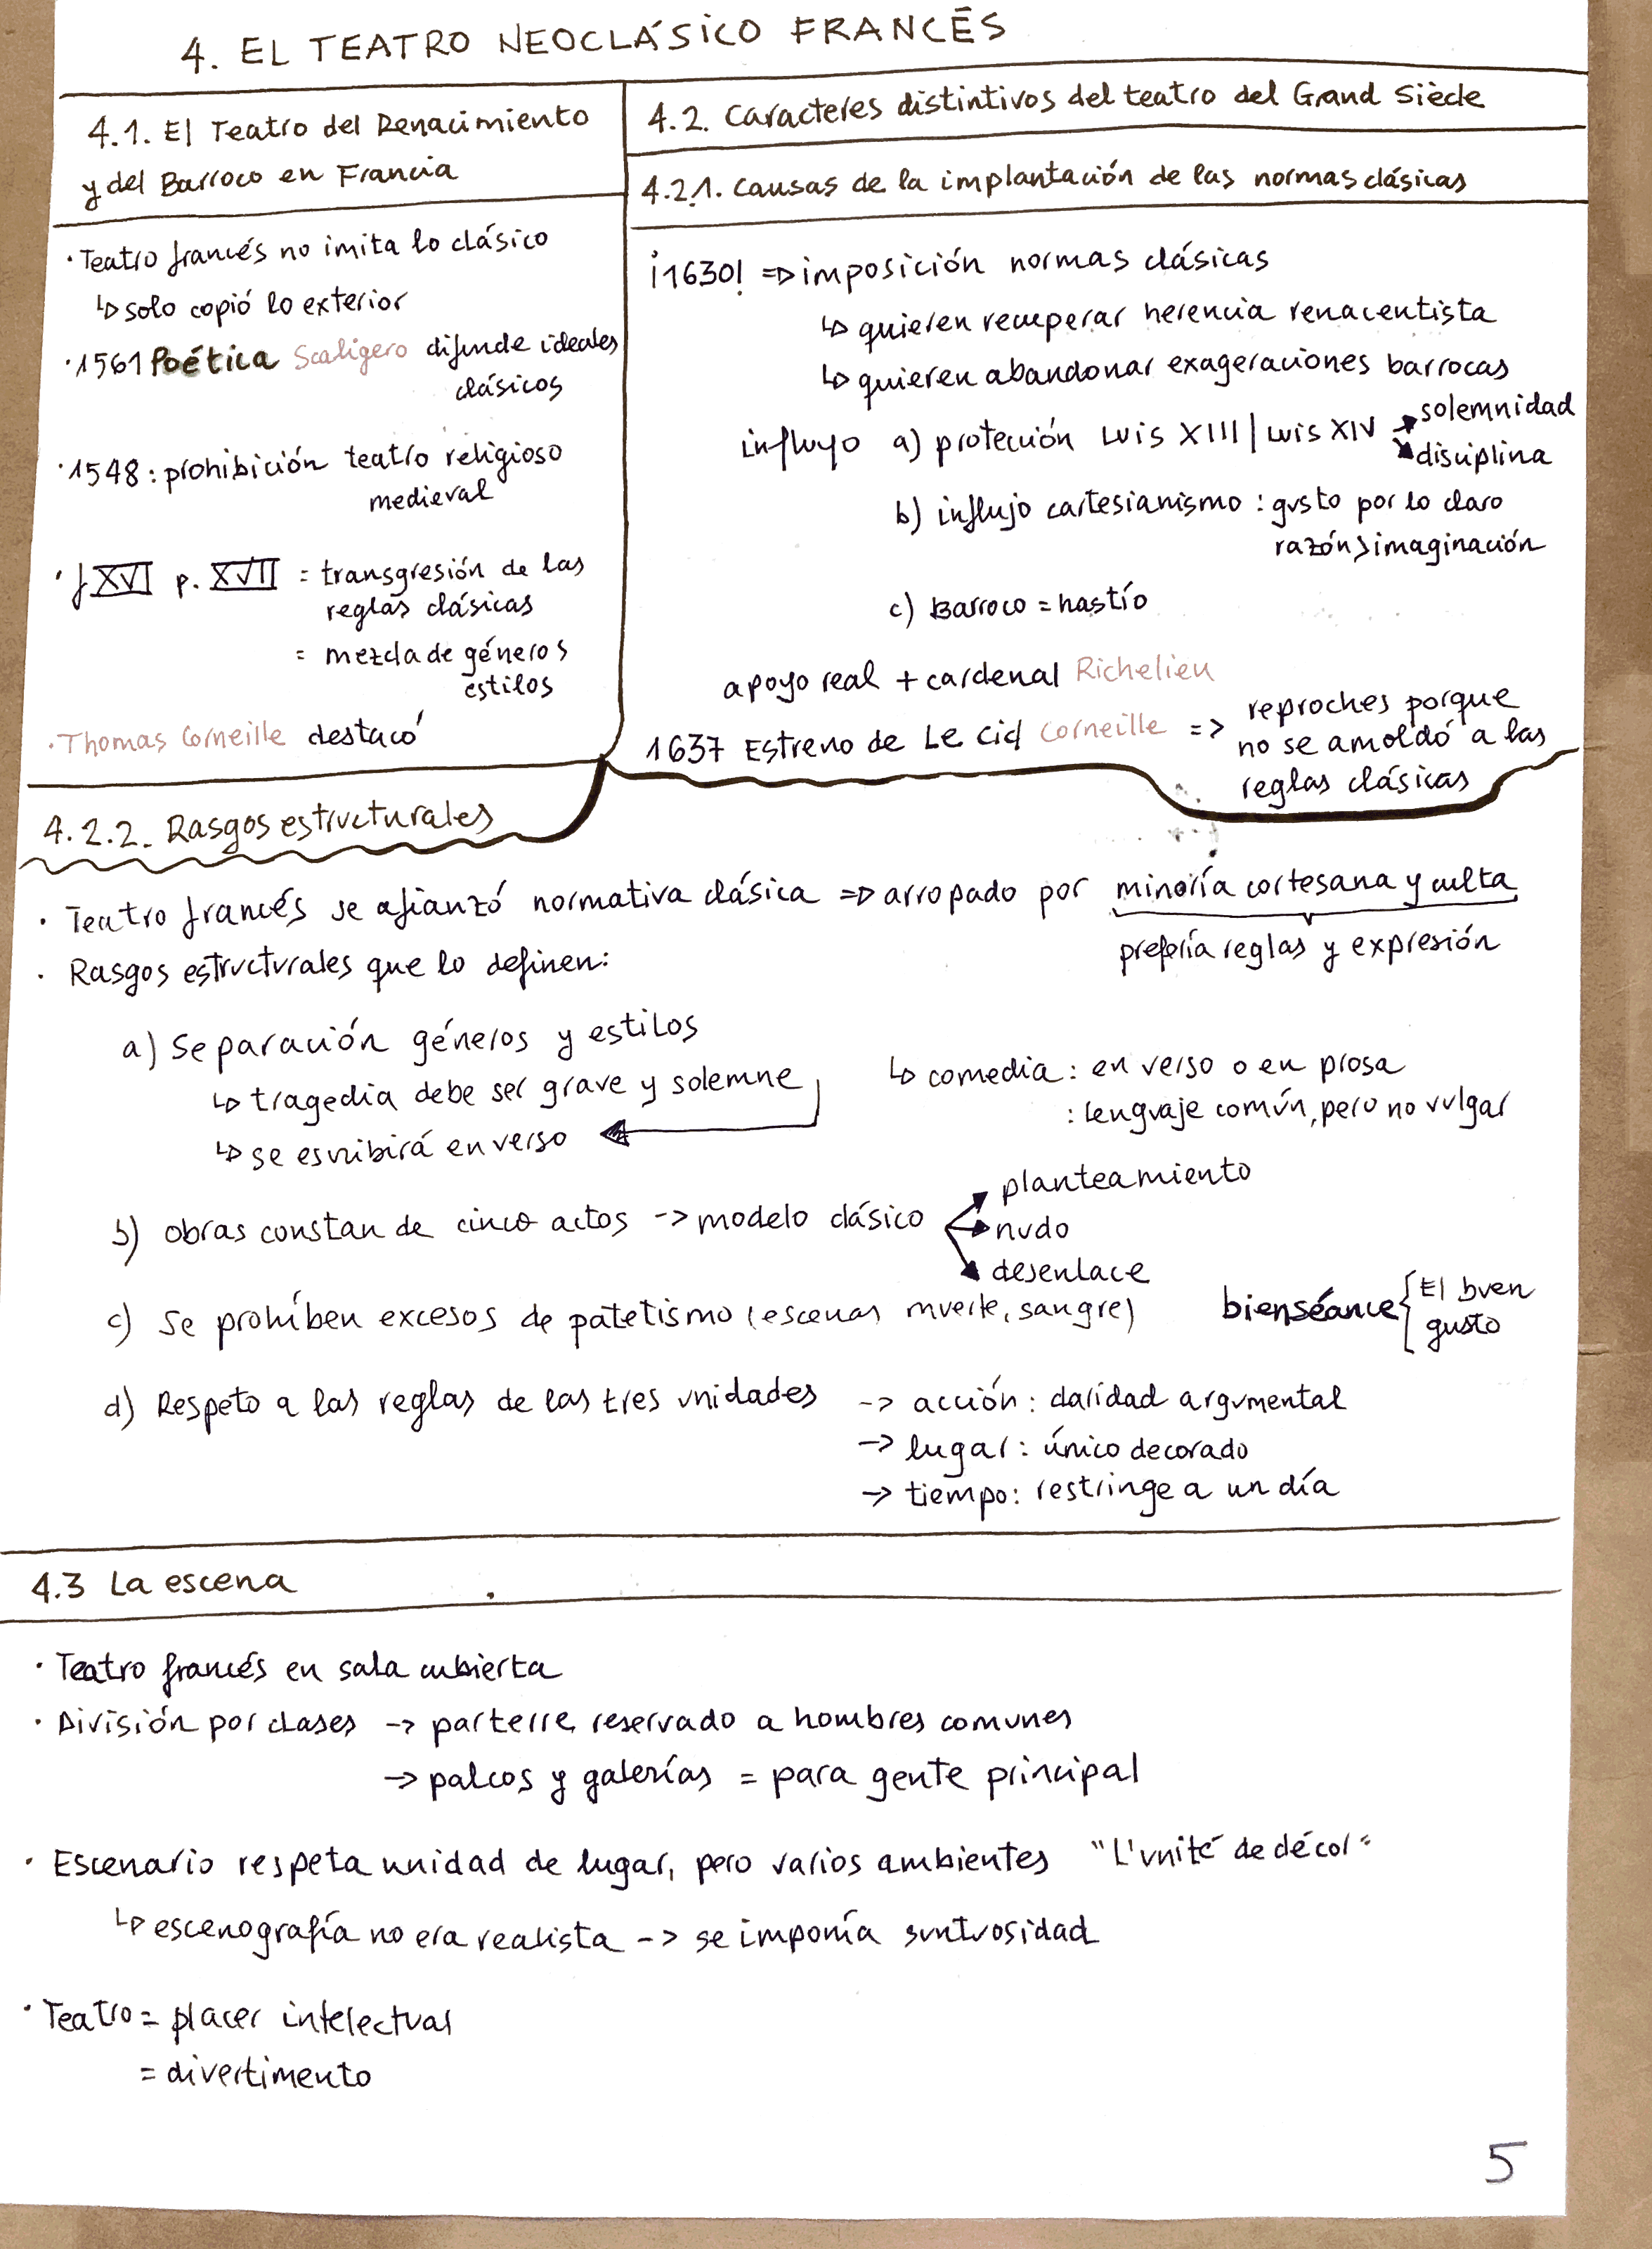 4. EL TEATRO NEOCLÁSICO FRANCÉS
4.1. El Teatro del Renacimiento
y del Barroco en Francia
· Teatro francés no imita lo clásico
↳ solo copió lo exterior
· 1561 Poética Scaligero difunde ideales
clásicos
· 1548: prohibición teatro religioso
medieval
· f XVI p. XVII = transgresión de las
reglas clásicas
= mezcla de géneros
estilos
· Thomas Corneille destacó
4.2. Caracteres distintivos del teatro del Grand Siècle
4.2.1. Causas de la implantación de las normas clásicas
¡1630! => imposición normas clásicas
↳ quieren recuperar herencia renacentista
↳ quieren abandonar exageraciones barrocas
influyo a) protección Luis XIII | Luis XIV → solemnidad
→ disciplina
b) influjo cartesianismo: gusto por lo claro
razón > imaginación
c) Barroco = hastío
apoyo real + cardenal Richelieu
1637 Estreno de Le Cid Corneille => reproches porque
no se amoldó a las
reglas clásicas
4.2.2. Rasgos estructurales
· Teatro francés se afianzó normativa clásica => arropado por minoría cortesana y culta
prefería reglas y expresión
· Rasgos estructurales que lo definen:
a) Separación géneros y estilos
↳ tragedia debe ser grave y solemne
↳ se escribirá en verso
↳ comedia: en verso o en prosa
: lenguaje común, pero no vulgar
b) obras constan de cinco actos -> modelo clásico
planteamiento
nudo
desenlace
c) Se prohíben excesos de patetismo (escenas muerte, sangre) bienséance { El buen
gusto
d) Respeto a las reglas de las tres unidades -> acción: claridad argumental
-> lugar: único decorado
-> tiempo: restringe a un día
4.3 La escena
· Teatro francés en sala cubierta
· División por clases -> parterre reservado a hombres comunes
-> palcos y galerías = para gente principal
· Escenario respeta unidad de lugar, pero varios ambientes "L'unité de décor"
↳ escenografía no era realista -> se imponía suntuosidad
· Teatro = placer intelectual
= divertimento
5